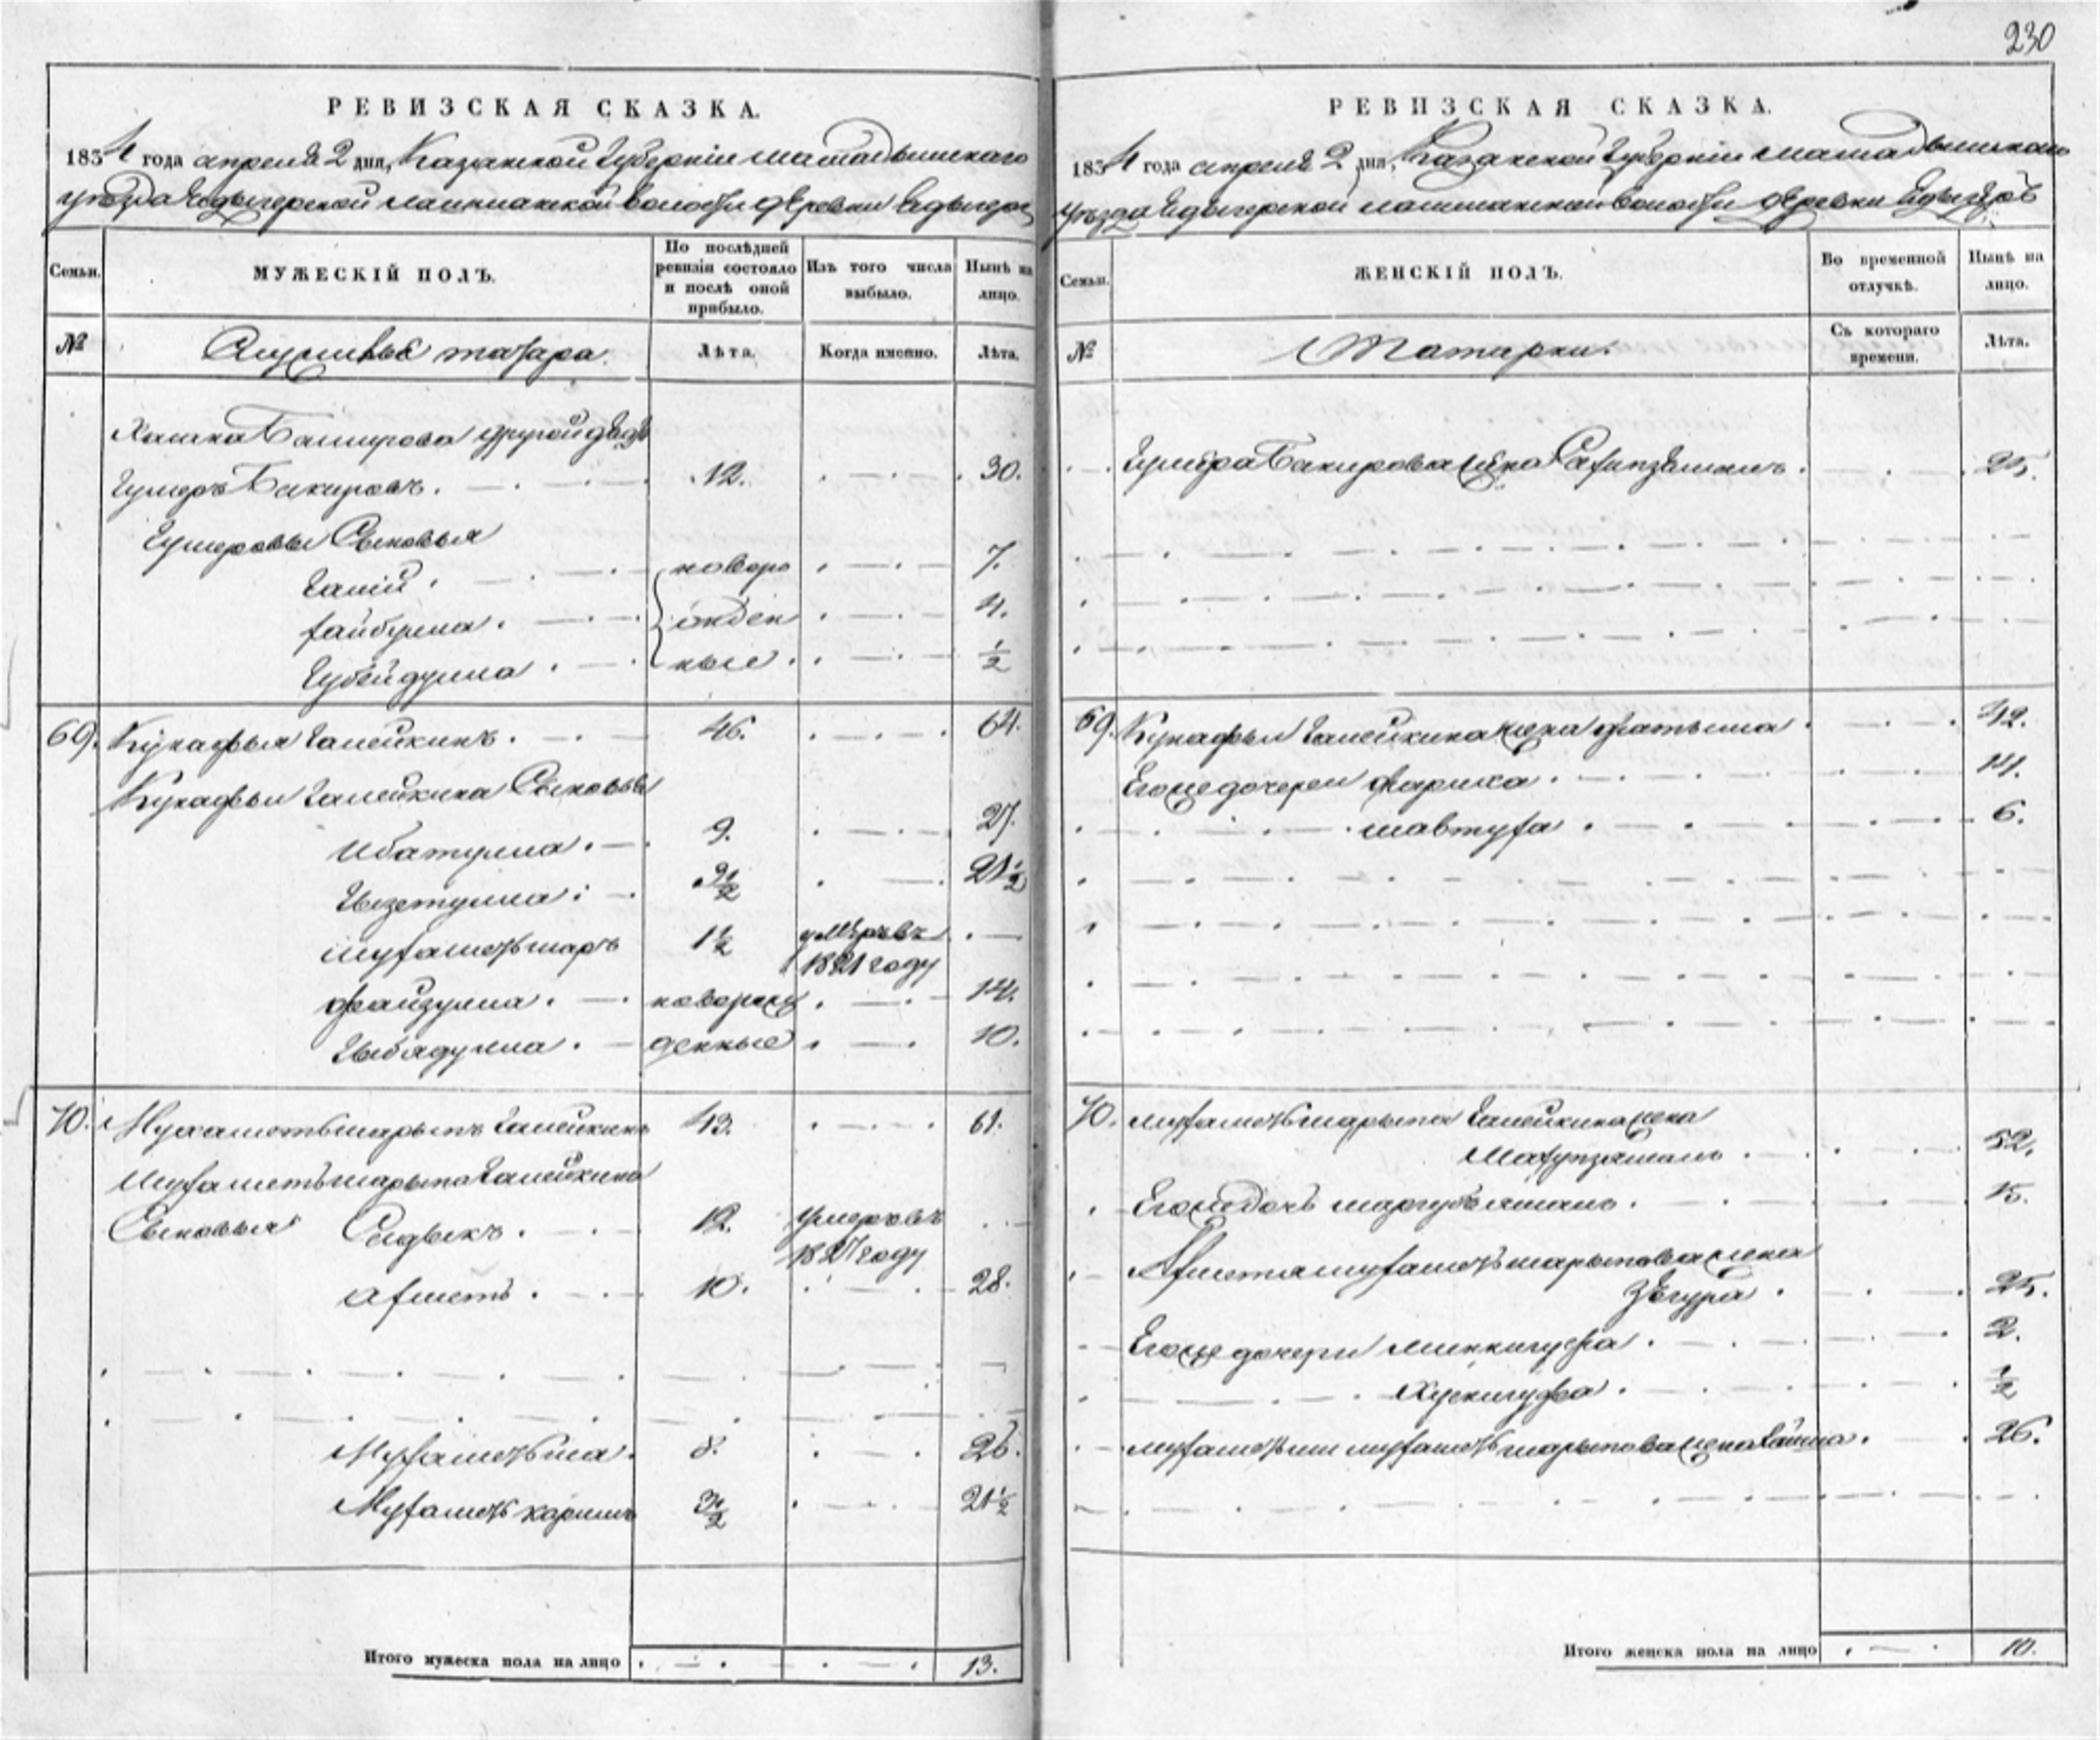 230
РЕВИЗСКАЯ СКАЗКА.
1834 года апреля 2 дня, Казанской Губернiи Мамадышскаго
уезда Едыгерской лашманской волости деревни Едыгеръ
Семьи.
МУЖЕСКIЙ ПОЛЪ.
По послѣдней ревизiи состояло и послѣ оной прибыло.
Изъ того числа выбыло.
Нынѣ на лицо.
№
Служивые татара.
Лѣта.
Когда именно.
Лѣта.
Баширова другой
Гумеръ Бакировъ. 12. 30.
Гумеровы Сыновья
Галiй. новоро 7.
Хайбулла. жден 4.
Губейдулла. ные. ½
69. Кунафья Галейкинъ. 46. 64.
Кунафьи Галейкина Сыновья
Ибатулла. 9. 27.
Гизетулла. 3½ 21½
Мухаметьшаръ 1½ умеръ въ
1821 году
Файзулла. новорож 14.
Гибядулла. денные 10.
70. Мухаметьшарыпъ Галейкинъ 43. 61.
Мухаметьшарыпа Галейкина
Сыновья Садыкъ. 12. Умеръ въ
1827 году
Ахметь. 10. 28.
Мухаметьша. 8. 26.
Мухаметь каримъ 3½ 21½
Итого мужеска пола на лицо 13.
РЕВИЗСКАЯ СКАЗКА.
1834 года апреля 2 дня, Казанской Губернiи Мамадышскаго
уезда Едыгерской лашманской волости деревни Едыгеръ
Семьи.
ЖЕНСКIЙ ПОЛЪ.
Во временной отлучкѣ.
Нынѣ на лицо.
№
Татарки.
Съ котораго времени.
Лѣта.
Гумера Бакирова жена 25.
69. Кунафьи Галейкина жена Фатьима 42.
Его же дочери Фариха. 14.
6.
70. Мухаметьшарыпа Галейкина жена
52.
Его же дочь 15.
Ахметя Мухаметьшарыпова жена
Зюгура. 25.
Его же дочери Миннигуфа. 2.
Хуснигуфа. ½
Мухаметьши Мухаметьшарыпова жена 26.
Итого женска пола на лицо 10.